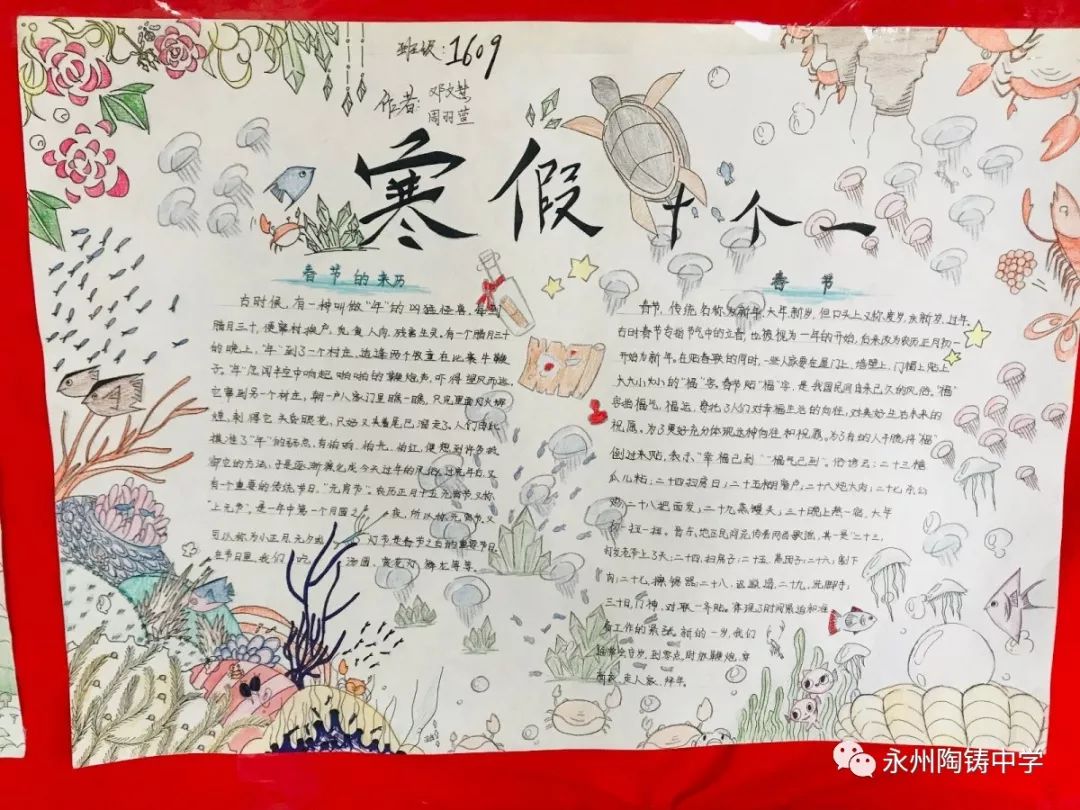 班级:1609
作者:邓文慧
周羽萱
寒假十个一
春节的来历
古时候,有一种叫做“年”的凶猛怪兽,每到
腊月三十,便窜村挨户,觅食人肉,残害生灵。有一个腊月三十
的晚上,“年”到了一个村庄,适逢两个牧童在比赛牛鞭
子。“年”忽闻半空中响起啪啪的鞭炮声,吓得望风而逃。
它窜到另一个村庄,朝一户人家门里瞧一瞧,只见里面灯火辉
煌,刺得它头昏眼花,只好又夹着尾巴溜走了。人们由此
摸准了“年”的弱点,有怕响、怕光、怕红,便想到许多抵
御它的方法,于是逐渐演化成今天过年的风俗。过完年后,又
有个重要的传统节日,“元宵节”。农历正月十五元宵节,又称
“上元节”,是一年中第一个月圆之 夜,所以称元宵节,又
可以称为小正月、元夕或 灯节是春节之后的重要节日,
在节日里,我们 吃 汤圆、赏花灯、舞龙等等。
春节
春节,传统名称为新年、大年、新岁,但口头上又称度岁、庆新岁、过年。
古时春节专指节气中的立春,也被视为一年的开始,后来改为农历正月初一
开始为新年。在贴春联的同时,一些人家要在屋门上、墙壁上、门楣上贴上
大大小小的“福”字。春节贴“福”字,是我国民间由来已久的风俗。“福”
字指福气、福运,寄托了人们对幸福生活的向往,对美好生活未来的
祝愿。为了更好充分体现这种向往和祝愿。为了有的人干脆将“福”
倒过来贴,表示“幸福已到”“福气已到”。俗谚云:二十三糖
瓜儿粘;二十四扫房日;二十五糊窗户;二十六炖大肉;二十七杀公
鸡;二十八把面发;二十九蒸馒头;三十晚上熬一宿,大年
初一扭一扭。
肉;二十七,擦锡器;二十八,沤邋遢;二十九,洗脚手;
三十日,门神、对联一齐贴。体现了时间紧迫和准
备工作的紧张。新的一岁,我们